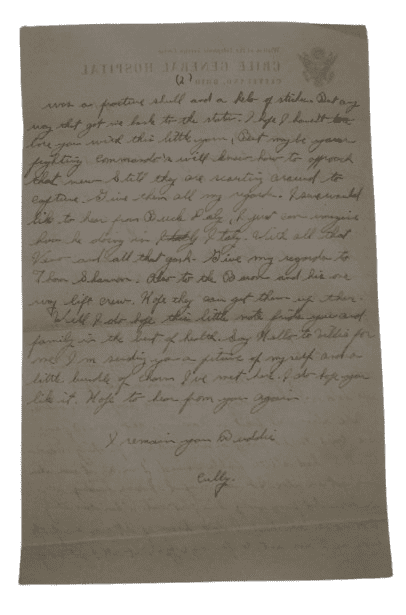 CRILE GENERAL HOSPITAL
CLEVELAND, OHIO
(2)
was a practice shell and a of sticks. But any
way that got us back to the states. I hope I haven't
you with this little yarn, But maybe your
fighting Commando's will know how to approch
that new they are scouting around to
capture. Give them all my regards. I sure would
like to hear from Buck, I just can imagine
how he doing in Italy. With all that
Vino and all that gash. Give my regards to
Thom Shannon. Also to the Baron and his one
very left crew. Hope they can get them up there.
Well I do hope this little note finds you and
family in the best of health. Say Hallo to for
me. I'm sending you a picture of my self and a
little bundle of charm I've met here. I do hope you
like it. Hope to hear from you again.
I remain your Buddie
Cully.